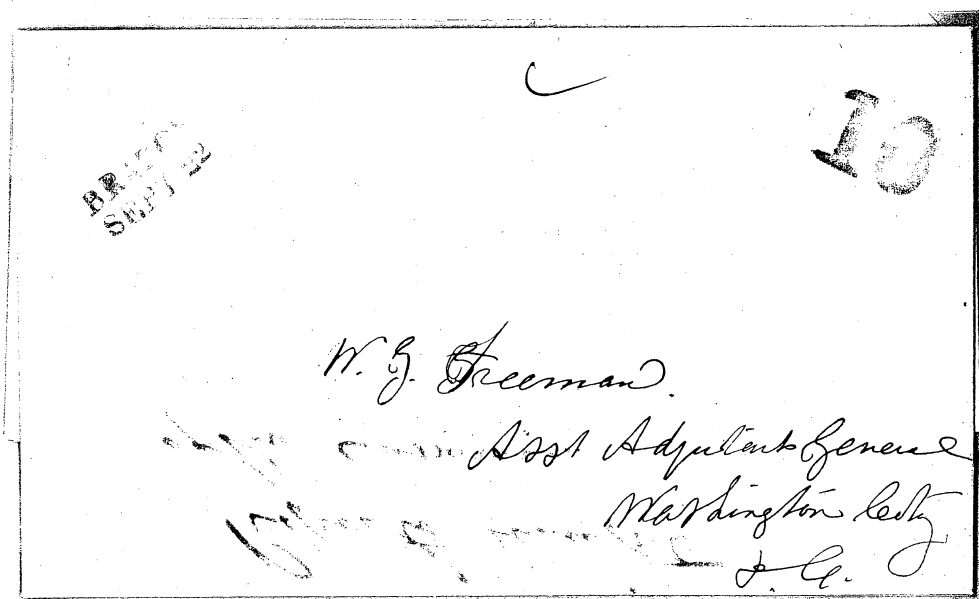 SEPT 22
10
W. G. Freeman
Asst Adjutant General
Washington City
D. C.